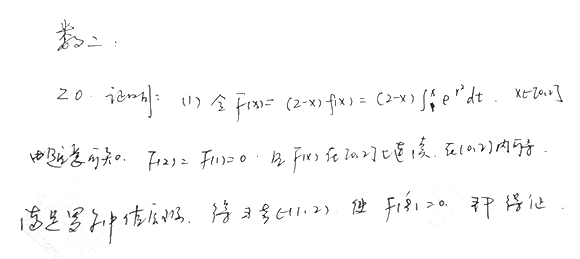 数二:
20. 证明: (1) 令 F(x) = (2-x) f(x) = (2-x) ∫₁ˣ e^{t²} dt. x∈[0,2]
由题意可知. F(2) = F(1) = 0. 且 F(x) 在[0,2]上连续, 在(0,2)内可导.
满足罗尔中值定理. 得 ∃ξ∈(1,2). 使 F'(ξ)=0. 即得证